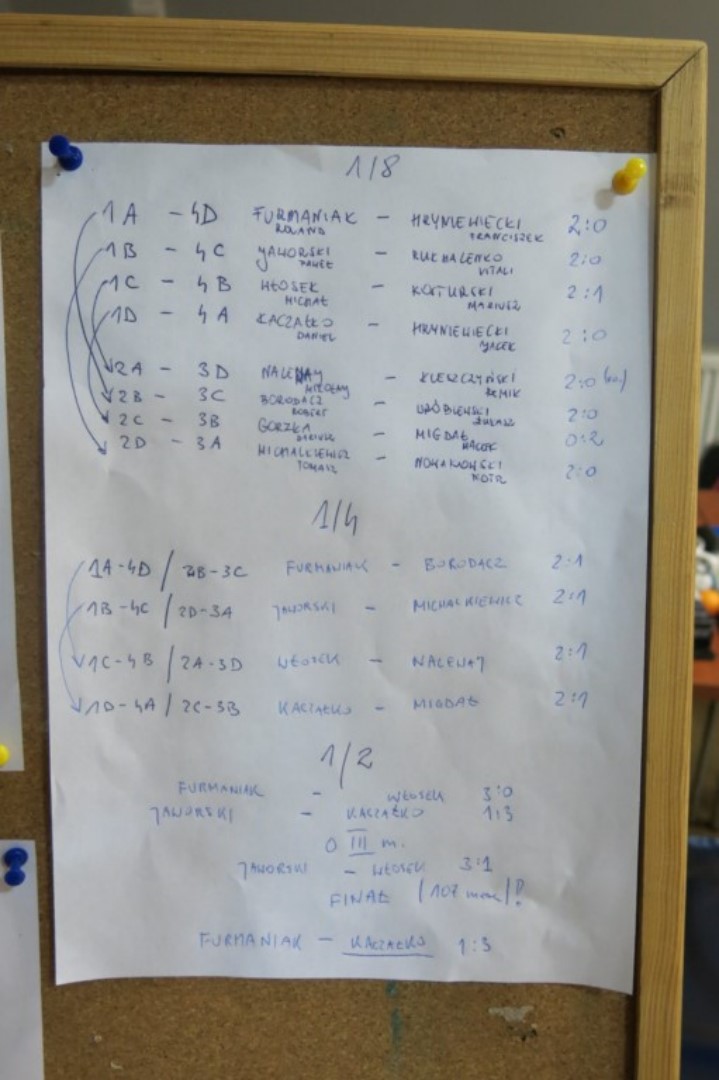 1/8
1A - 4D FURMANIAK - HRYNIEWIECKI 2:0
ROLAND FRANCISZEK
1B - 4C JAWORSKI - RUKHALENKO 2:0
PAWEŁ VITALI
1C - 4B WŁOSEK - KOSTURSKI 2:1
MICHAŁ MARIUSZ
1D - 4A KACZAŁKO - HRYNIEWIECKI 2:0
DANIEL JACEK
2A - 3D NALEWAY - KLESZCZYŃSKI 2:0
MIKOŁAY REMIK
2B - 3C BORODACZ - WRÓBLEWSKI 2:0
ROBERT ŁUKASZ
2C - 3B GORZKA - MIGDAŁ 0:2
DARIUSZ MACIEK
2D - 3A MICHALKIEWICZ - NOWAKOWSKI 2:0
TOMASZ PIOTR
1/4
1A-4D / 2B-3C FURMANIAK - BORODACZ 2:1
1B-4C / 2D-3A JAWORSKI - MICHALKIEWICZ 2:1
1C-4B / 2A-3D WŁOSEK - NALEWAJ 2:1
1D-4A / 2C-3B KACZAŁKO - MIGDAŁ 2:1
1/2
FURMANIAK - WŁOSEK 3:0
JAWORSKI - KACZAŁKO 1:3
O III m.
JAWORSKI - WŁOSEK 3:1
FINAŁ (107 mecz)!
FURMANIAK - KACZAŁKO 1:3